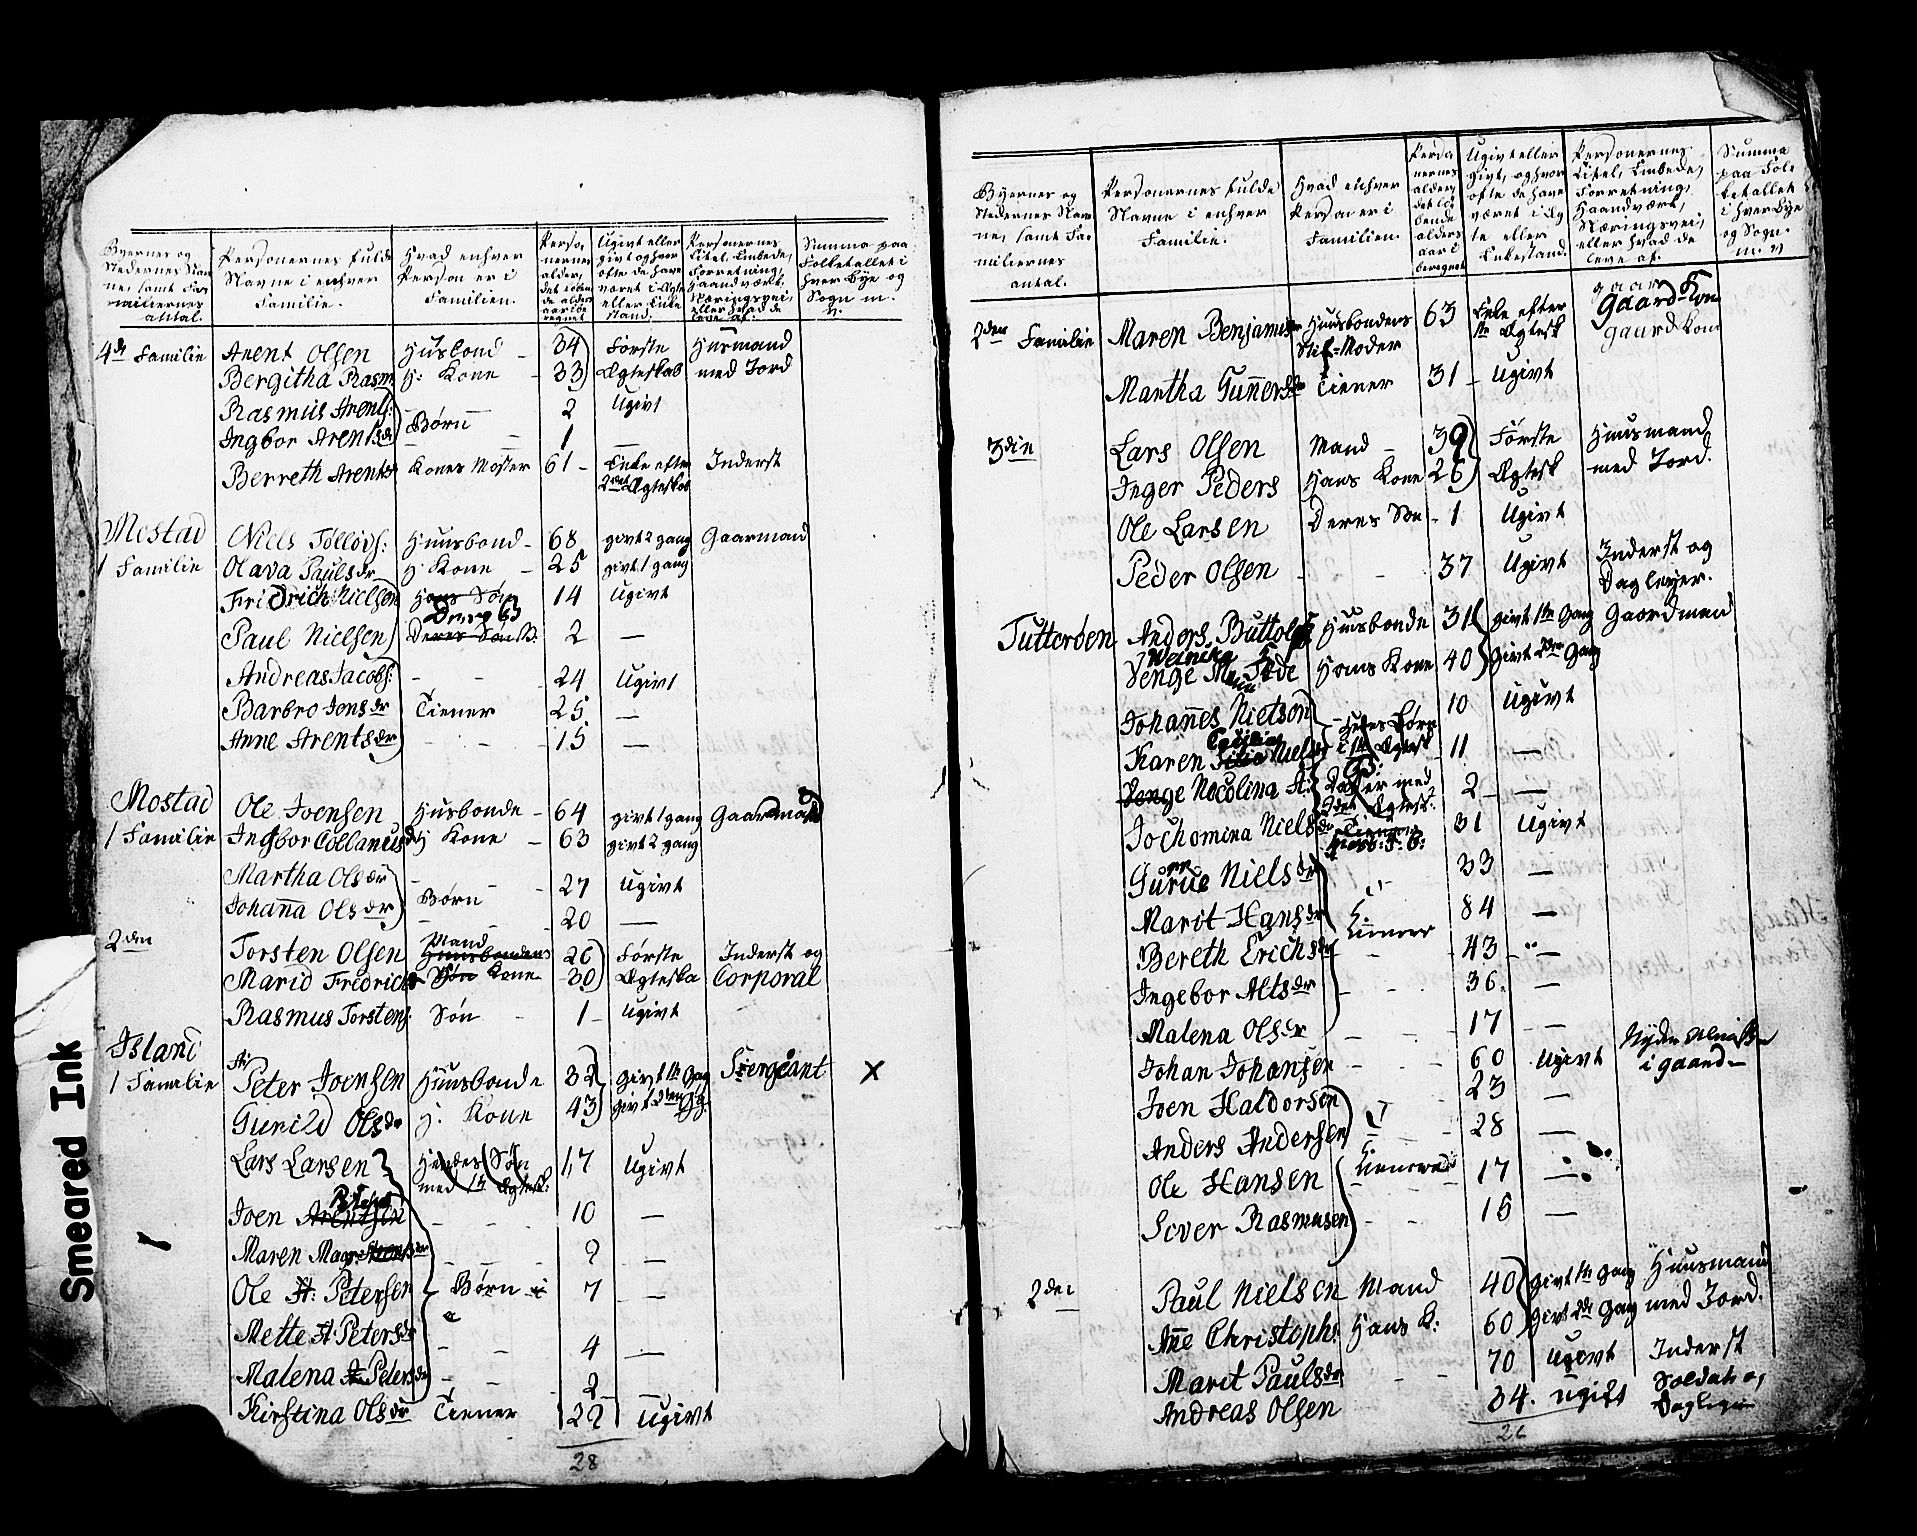 Byernes og Stedernes Navne, samt Familiernes antal.
Personernes fulde Navne i enhver Familie.
Hvad enhver Person er i Familien.
Personernes alder, det løbende alders aar beregnet
Ugivt eller givt, og hvor ofte de have været i Ægte eller Enkestand.
Personernes Titel, Embede, Forretning, Haandværk, Næringsvei, eller hvad de leve af.
Summa paa Folketallet i hver Bye og Sogn m. v.
4de Familie Arent Olsen Husbond 34 Første Husmand
Bergitha Rasm H: Kone 33 Ægteskab med Jord
Rasmus Arents: Børn 2 Ugivt
Ingbor Arentsdr 1 —
Berreth Arentsdr Kones Moster 61 Enke efter 2det Ægteskab Inderst
Mostad Niels Tolløvs: Huusbond 68 givt 2 gang Gaarmand
1 Familie Olava Paulsdr H: Kone 25 givt 1 gang
Fridrich Nielsen 14 Ugivt
Paul Nielsen 2 —
Andreas Jacobs: 24 Ugivt
Barbro Jonsdr Tiener 25 —
Anne Arentsdr 15 —
Mostad Ole Joensen Husbonde 64 givt 1 gang Gaardmand
1 Familie Ingbor Collanusdr H: Kone 63 givt 2 gang
Martha Olsdr Børn 27 Ugivt
Johanna Olsdr 20 —
2den Torsten Olsen Mand 26 Første Inderst og
Marid Fredrichsdr Kone 30 Ægteska Corporal
Rasmus Torstens: Søn 1 Ugivt
Island
1 Familie Peter Joensen Huusbonde 32 givt 1te Gang Sergeant x
Gunild Olsdr H: Kone 43 givt 2den Gg.
Lars Larsen Hendes Søn med 1te Ægtesk: 17 Ugivt
Joen 10 —
Maren —
Ole Petersen Børn 7 —
Mette Petersdr 4 —
Malena Petersdr 2 —
Kirstina Olsdr Tiener 22 Ugivt
28
Smeared Ink
Byernes og Stedernes Navne, samt Familiernes antal.
Personernes fulde Navne i enhver Familie.
Hvad enhver Person er i Familien.
Personernes alder, det løbende alders aar i beregnet
Ugivt eller givt, og hvor ofte de have været i Ægte eller Enkestand.
Personernes Titel, Embede, Forretning, Haandværk, Næringsvei, eller hvad de leve af.
Summa paa Folketallet i hver Bye og Sogn m. v.
2den Familie Maren Benjaminsdr Huusbondens Stif-Moder 63 Enke efter 1te Ægtesk gaardkone
Martha Gunnersdr Tiener 31 Ugivt
3die Lars Olsen Mand 39 Første Huusmand
Inger Peders Hans Kone 26 Ægtesk med Jord.
Ole Larsen Deres Søn 1 Ugivt
Peder Olsen 37 Ugivt Inderst og Dagleyer.
Tutterøen Anders Buttolfs Huusbonde 31 givt 1te Gang Gaardmand
Hans Kone 40 givt 2den Gang
Johannes Nielson 10 Ugivt
Karen Niels 11 —
Nocolina A: 2 —
Jochomina Nielsdr 31 Ugivt
Nielsdr 33 —
Marit Hansdr Tiener 84 —
Bereth Erichsdr 43 "
Ingebor Altsdr 36 —
Malena Olsdr 17 —
Johan Johansen 60 Ugivt i gaard
Joen Haldorsen 23 —
Anders Andersen 28 —
Ole Hansen 17 —
Siver Rasmusen 15 —
2den Paul Nielsen Mand 40 givt 1te Gang Huusmand
Anne Christophs: Hans K: 60 givt 2de Gang med Jord.
Marit Paulsdr 70 Ugivt Inderst
Andreas Olsen 34. Ugift Soldat og
26